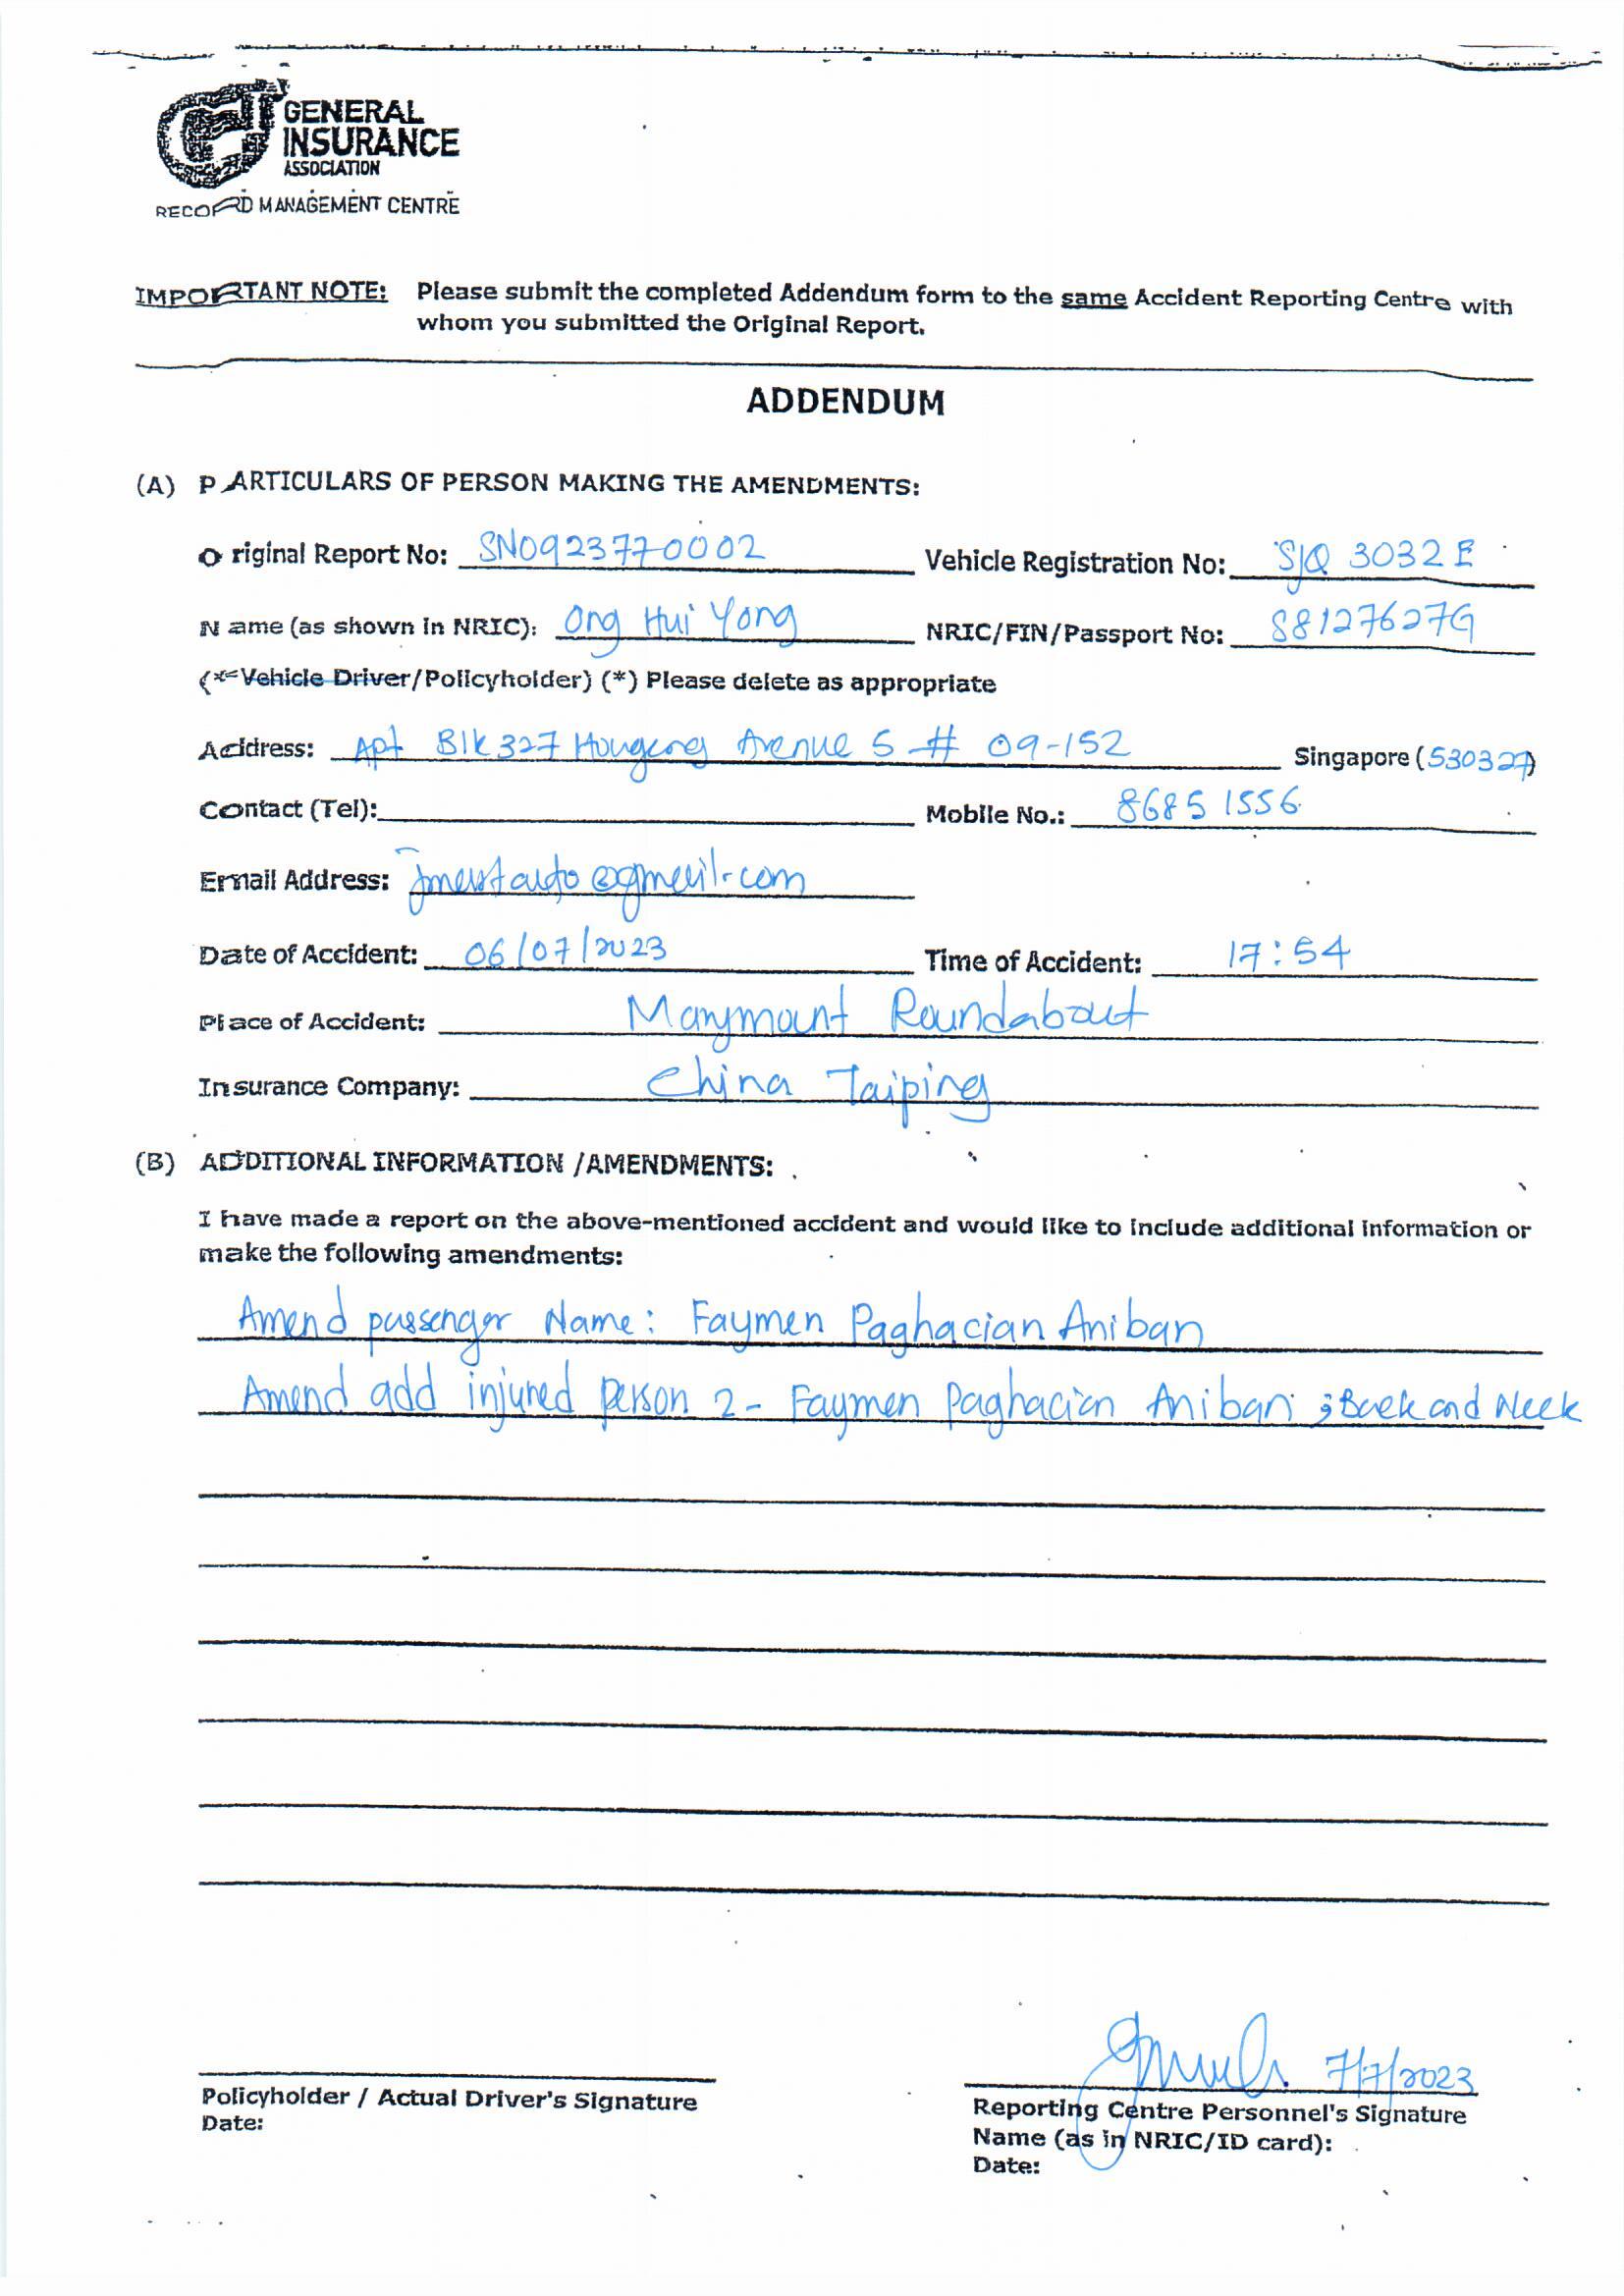 GENERAL
INSURANCE
ASSOCIATION
RECORD MANAGEMENT CENTRE
IMPORTANT NOTE: Please submit the completed Addendum form to the same Accident Reporting Centre with
whom you submitted the Original Report.
ADDENDUM
(A) PARTICULARS OF PERSON MAKING THE AMENDMENTS:
Original Report No: SN0923770002 Vehicle Registration No: SJQ 3032 E
Name (as shown in NRIC): Ong Hui Yong NRIC/FIN/Passport No: S8127627G
(*Vehicle Driver/Policyholder) (*) Please delete as appropriate
Address: Apt Blk 327 Hougang Avenue 5 # 09-152 Singapore (530327)
Contact (Tel): Mobile No.: 8685 1556
Email Address: @gmail.com
Date of Accident: 06/07/2023 Time of Accident: 17:54
Place of Accident: Marymount Roundabout
Insurance Company: China Taiping
(B) ADDITIONAL INFORMATION /AMENDMENTS:
I have made a report on the above-mentioned accident and would like to include additional information or
make the following amendments:
Amend passenger Name: Faymen Paghacian Aniban
Amend add injured person 2 - Faymen Paghacian Aniban ; Back and Neck
7/7/2023
Policyholder / Actual Driver's Signature
Date:
Reporting Centre Personnel's Signature
Name (as in NRIC/ID card):
Date: